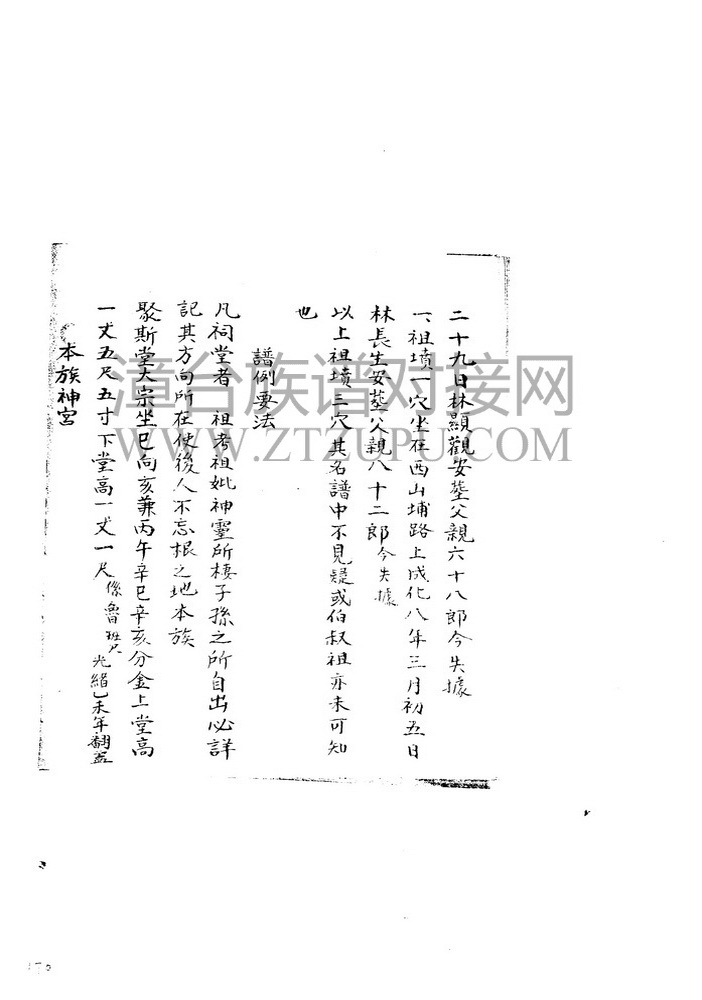 二十九日林顯觀安塟父親六十八郎今失據
一、祖墳一穴坐在西山埔路上成化八年三月初五日
林長生安塟父親八十二郎今失據
以上祖墳三穴其名譜中不見疑或伯叔祖亦未可知
也
譜例要法
凡祠堂者 祖考祖妣神靈所棲子孫之所自出必詳
記其方向所在使後人不忘根之地本族
聚斯堂大宗坐巳向亥兼丙午辛巳辛亥分金上堂高
一丈五尺五寸下堂高一丈一尺係魯班尺光緒乙未年翻蓋
本族神宮
漳台族谱对接网
WWW.ZTZUPU.COM